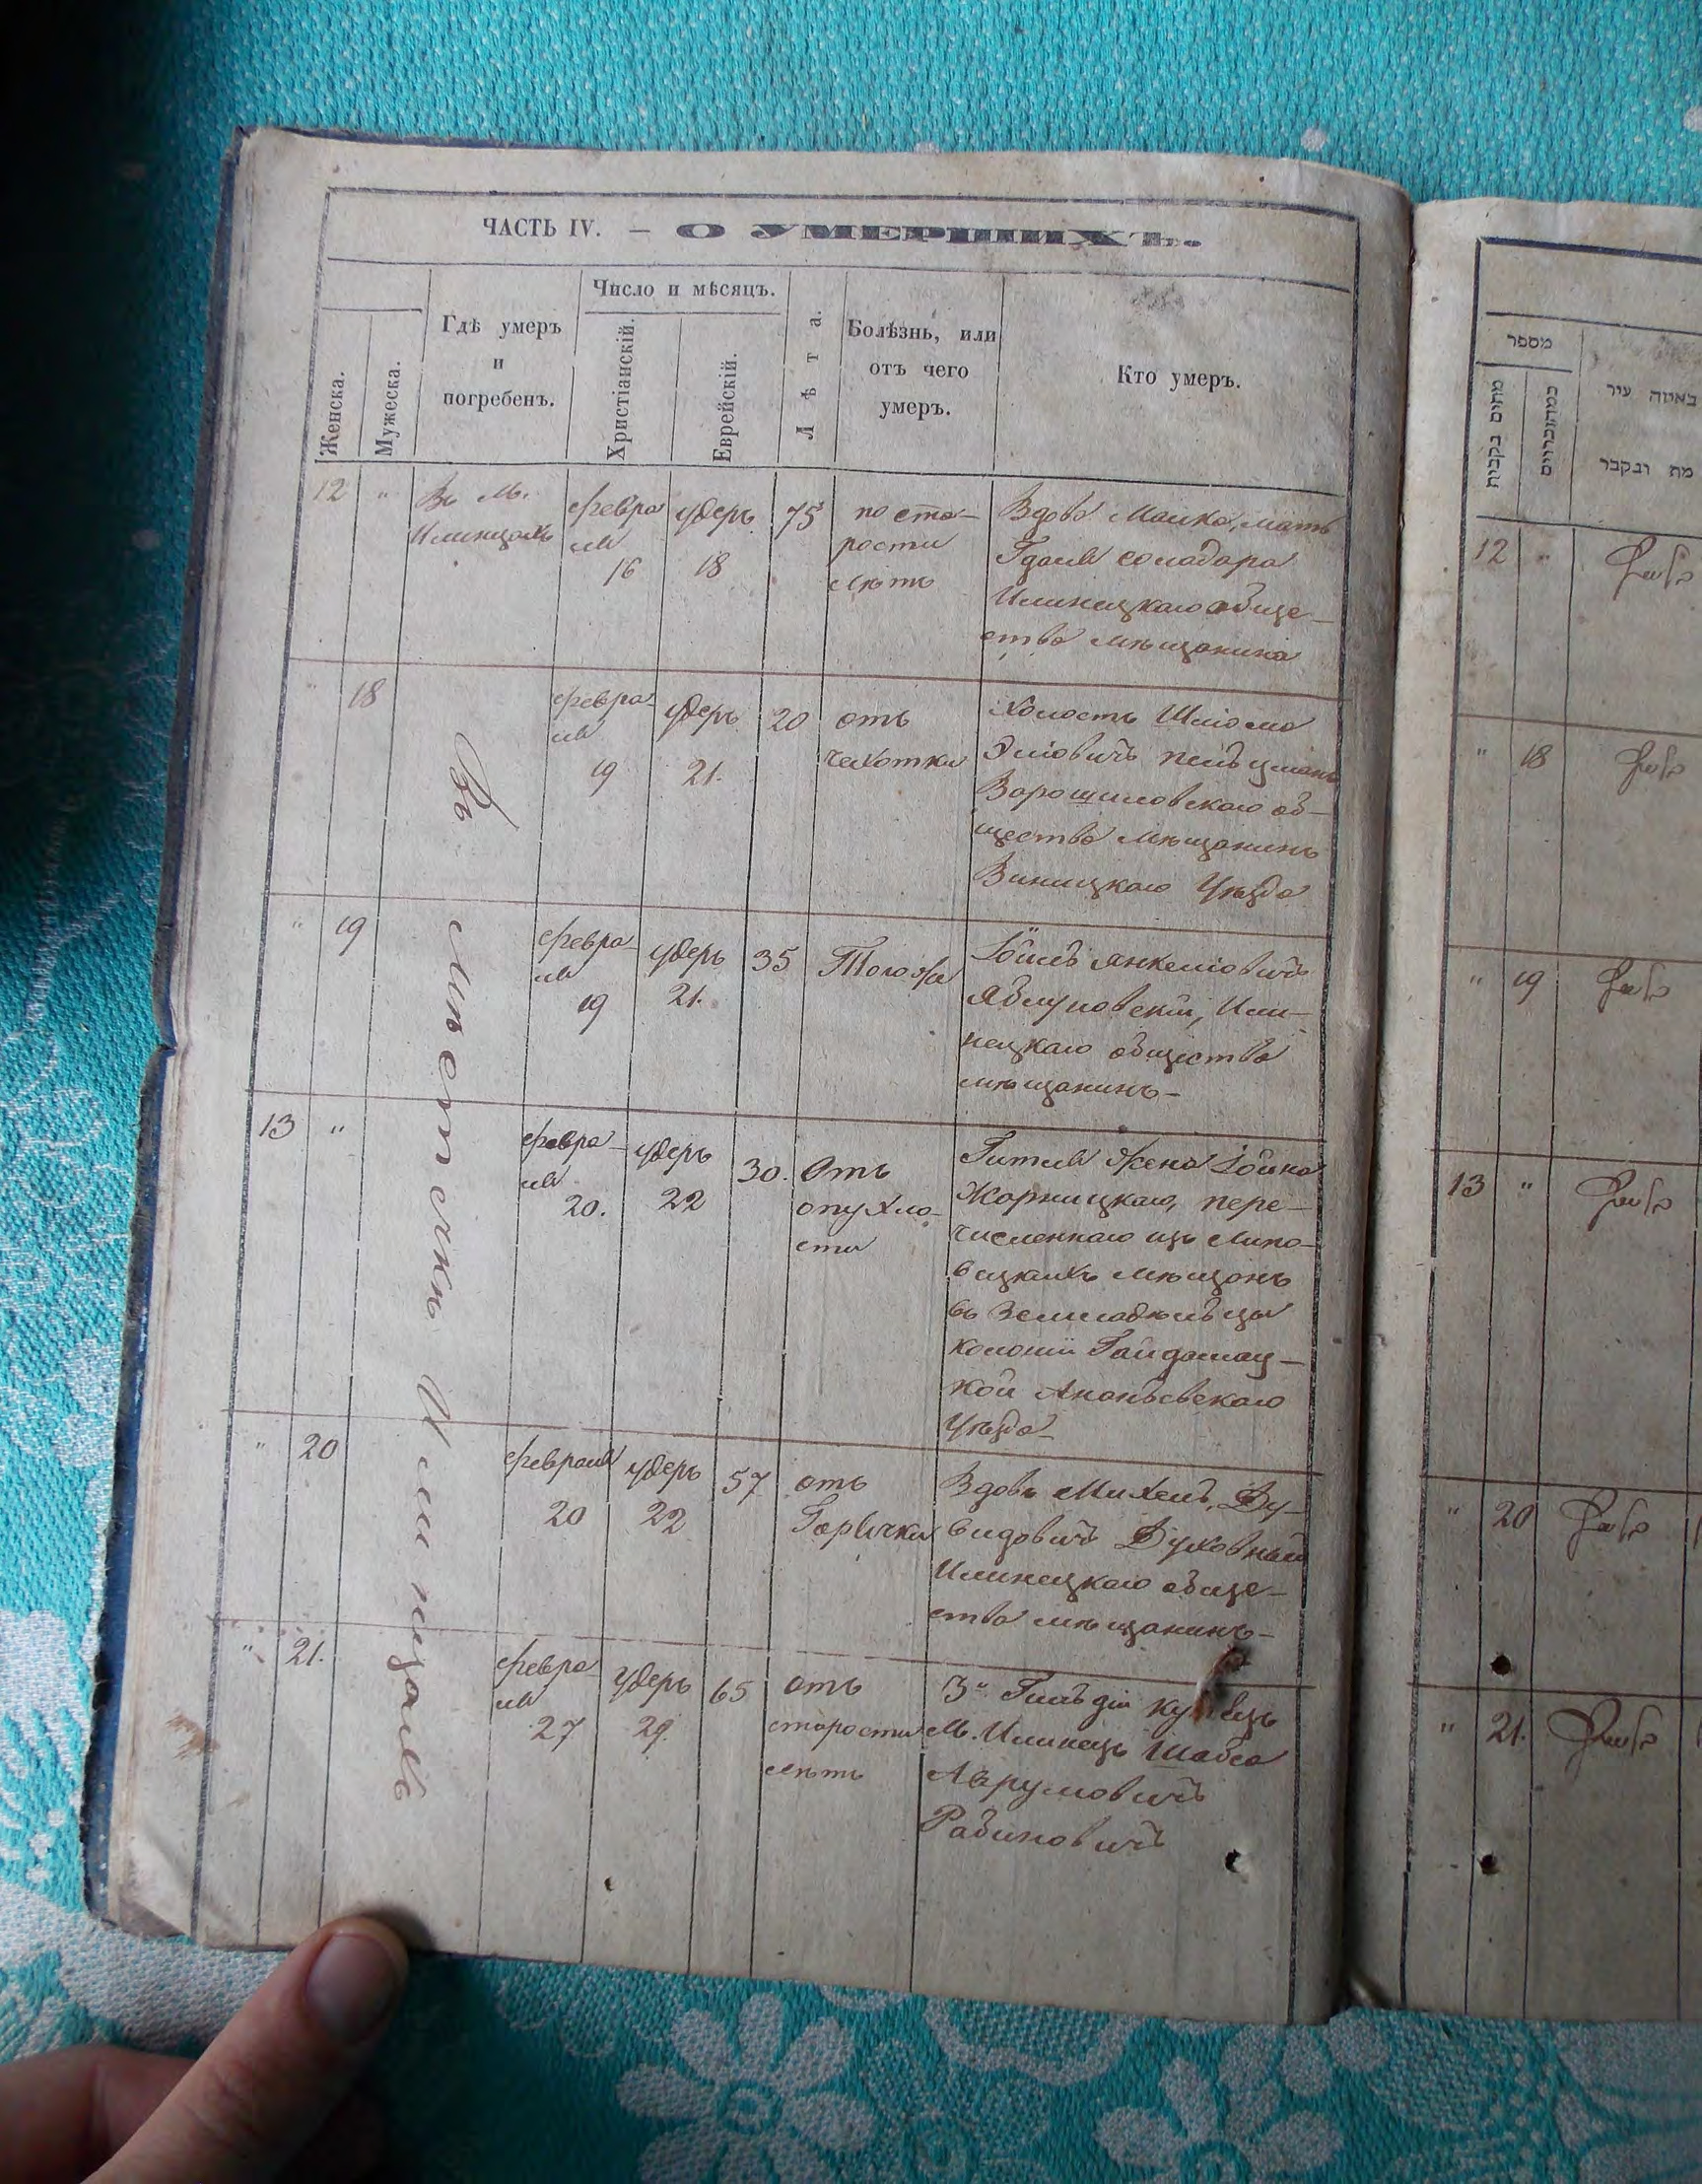 ЧАСТЬ IV. — О УМЕРШИХЪ.
Женска.
Мужеска.
Гдѣ умеръ
и
погребенъ.
Число и мѣсяцъ.
Христіанскій.
Еврейскій.
Лѣта.
Болѣзнь, или
отъ чего
умеръ.
Кто умеръ.
12 "
Въ м.
Илинцахъ
февра
ля
16
Удеръ
18
75
по ста-
рости
лѣтъ
Вдова Малка, мать
Илинецкаго обще-
ства мѣщанина
" 18
Въ мѣстечкѣ Илинцахъ
февра-
ля
19
Удеръ
21.
20
отъ
чехотки
Холостъ Шліома
Ворошиловскаго об-
щества мѣщанинъ
Виницкаго Уѣзда
" 19
февра-
ля
19
Удеръ
21.
35
Тогоже
Іойль Янкеліовичъ
Яблуновскій, Или-
нецкаго общества
мѣщанинъ-
13 "
февра-
ля
20.
Удеръ
22
30.
Отъ
опухло-
сти
Гитля жена Іойна
Жорницкаго, пере-
численнаго изъ Липо-
вецкихъ мѣщанъ
въ Земледѣльцы
колоніи Гайдамац-
кой Ананьевскаго
Уѣзда-
" 20
февраля
20
Удеръ
22
57
отъ
Горячки
Вдовъ Михель Ду-
видовичъ Духовный
Илинецкаго обще-
ства мѣщанинъ-
" 21.
февра
ля
27
Удеръ
29.
65
отъ
старости
лѣтъ
3й Гильдіи купецъ
м. Илинецъ Шабса
Аврумовичъ
Рабиновичъ
מספר
באיזה עיר
מת ונקבר
12 "
" 18
" 19
13 "
" 20
" 21.